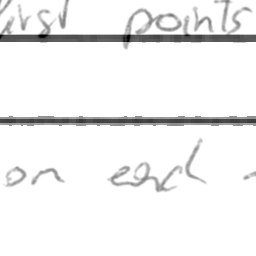 first points
on each